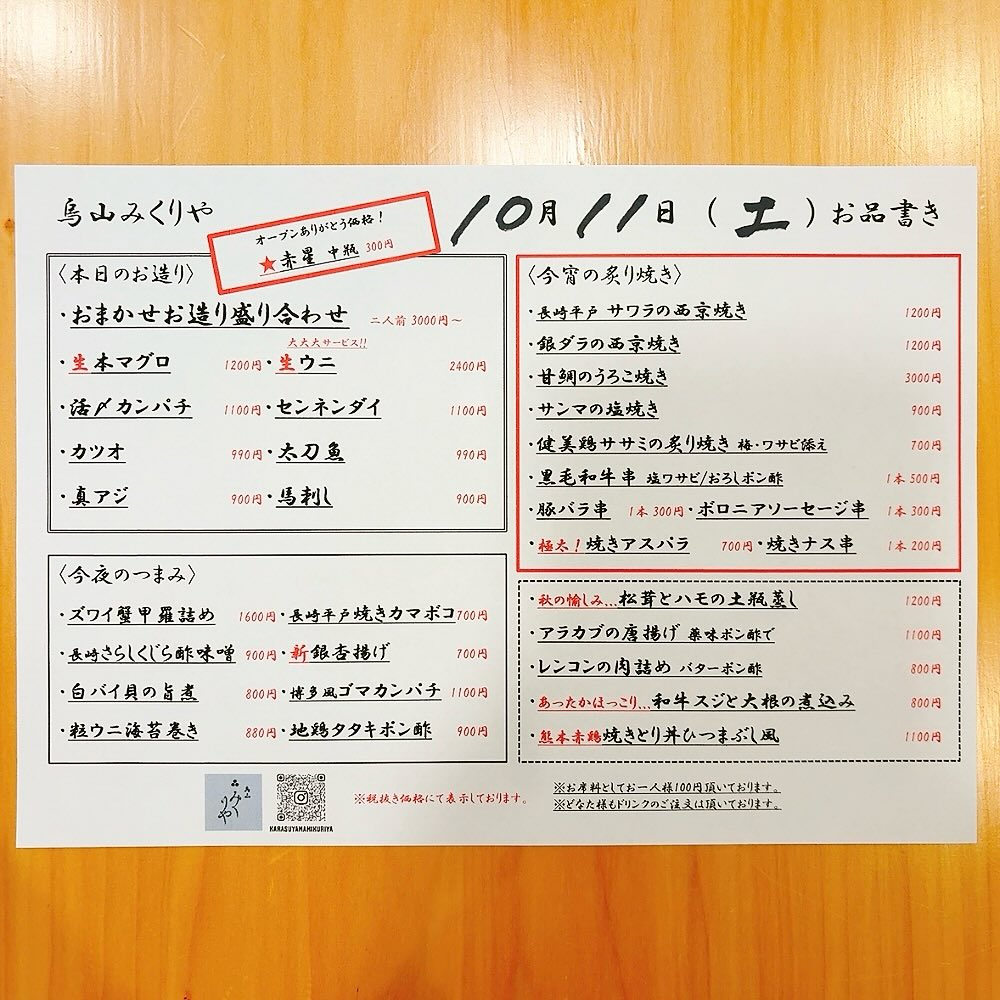 烏山みくりや
オープンありがとう価格！
★赤星 中瓶 300円
10月11日（土）お品書き
〈本日のお造り〉
・おまかせお造り盛り合わせ 二人前 3000円～
・生本マグロ 1200円
大大大サービス!!
・生ウニ 2400円
・活〆カンパチ 1100円
・センネンダイ 1100円
・カツオ 990円
・太刀魚 990円
・真アジ 900円
・馬刺し 900円
〈今夜のつまみ〉
・ズワイ蟹甲羅詰め 1600円
・長崎平戸焼きカマボコ 700円
・長崎さらしくじら酢味噌 900円
・新銀杏揚げ 700円
・白バイ貝の旨煮 800円
・博多風ゴマカンパチ 1100円
・粒ウニ海苔巻き 880円
・地鶏タタキポン酢 900円
〈今宵の炙り焼き〉
・長崎平戸 サワラの西京焼き 1200円
・銀ダラの西京焼き 1200円
・甘鯛のうろこ焼き 3000円
・サンマの塩焼き 900円
・健美鶏ササミの炙り焼き 梅・ワサビ添え 700円
・黒毛和牛串 塩ワサビ/おろしポン酢 1本 500円
・豚バラ串 1本 300円
・ボロニアソーセージ串 1本 300円
・極太！焼きアスパラ 700円
・焼きナス串 1本 200円
・秋の愉しみ…松茸とハモの土瓶蒸し 1200円
・アラカブの唐揚げ 薬味ポン酢で 1100円
・レンコンの肉詰め バターポン酢 800円
・あったかほっこり…和牛スジと大根の煮込み 800円
・熊本赤鶏焼きとり丼ひつまぶし風 1100円
烏山
みくりや
KARASUYAMAMIKURIYA
※税抜き価格にて表示しております。
※お席料としてお一人様100円頂いております。
※どなた様もドリンクのご注文は頂いております。